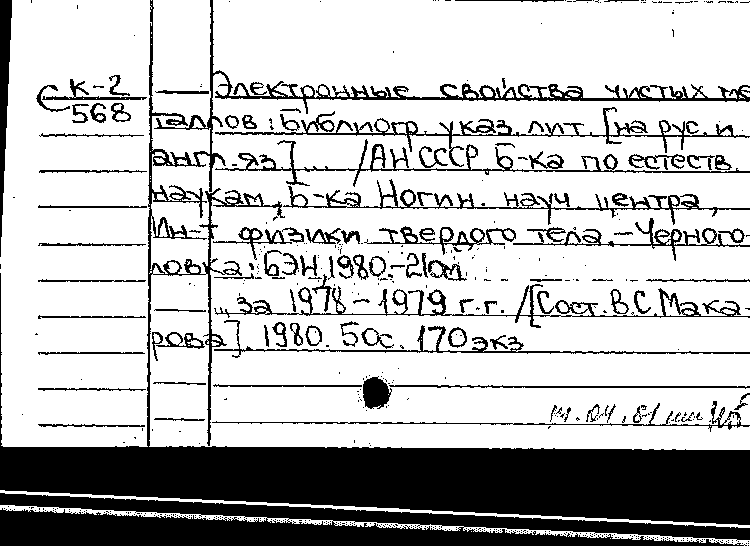 К-2
568
Электронные свойства чистых ме
таллов: Библиогр. указ. лит. [на рус. и
англ. яз]... /АН СССР. Б-ка по естеств.
наукам, Б-ка Ногин. науч. центра,
Ин-т физики твердого тела. - Черного-
ловка: БЭН, 1980. - 21см
... за 1978 - 1979 г.г. / [Сост. В.С. Мака-
рова]. 1980. 50с. 170 экз
04.81